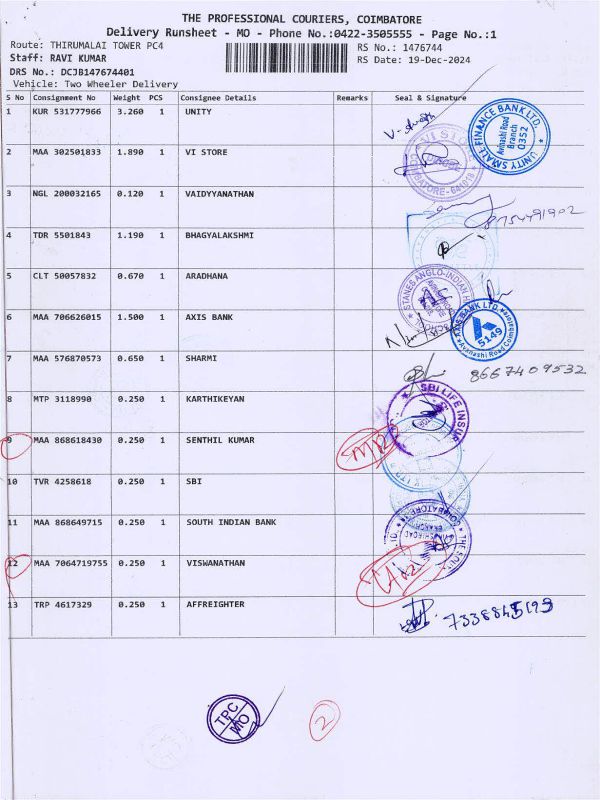 THE PROFESSIONAL COURIERS, COIMBATORE
Delivery Runsheet - MO - Phone No.:0422-3505555 - Page No.:1
Route: THIRUMALAI TOWER PC4
RS No.: 1476744
Staff: RAVI KUMAR
RS Date: 19-Dec-2024
DRS No.: DCJB147674401
Vehicle: Two Wheeler Delivery
S No Consignment No Weight PCS Consignee Details Remarks Seal & Signature
1 KUR 531777966 3.260 1 UNITY
UNITY SMALL FINANCE BANK LTD. Avinashi Road Branch 0352
2 MAA 302501833 1.890 1 VI STORE
VI STORE COIMBATORE-641018
3 NGL 200032165 0.120 1 VAIDYYANATHAN
8754491902
4 TDR 5501843 1.190 1 BHAGYALAKSHMI
5 CLT 50057832 0.670 1 ARADHANA
STANES ANGLO-INDIAN
6 MAA 706626015 1.500 1 AXIS BANK
AXIS BANK LTD. 5149 Avanashi Road
7 MAA 576870573 0.650 1 SHARMI
8667409532
8 MTP 3118990 0.250 1 KARTHIKEYAN
SBI LIFE INSUR
9 MAA 868618430 0.250 1 SENTHIL KUMAR
10 TVR 4258618 0.250 1 SBI
11 MAA 868649715 0.250 1 SOUTH INDIAN BANK
12 MAA 7064719755 0.250 1 VISWANATHAN
13 TRP 4617329 0.250 1 AFFREIGHTER
TPC MO
2